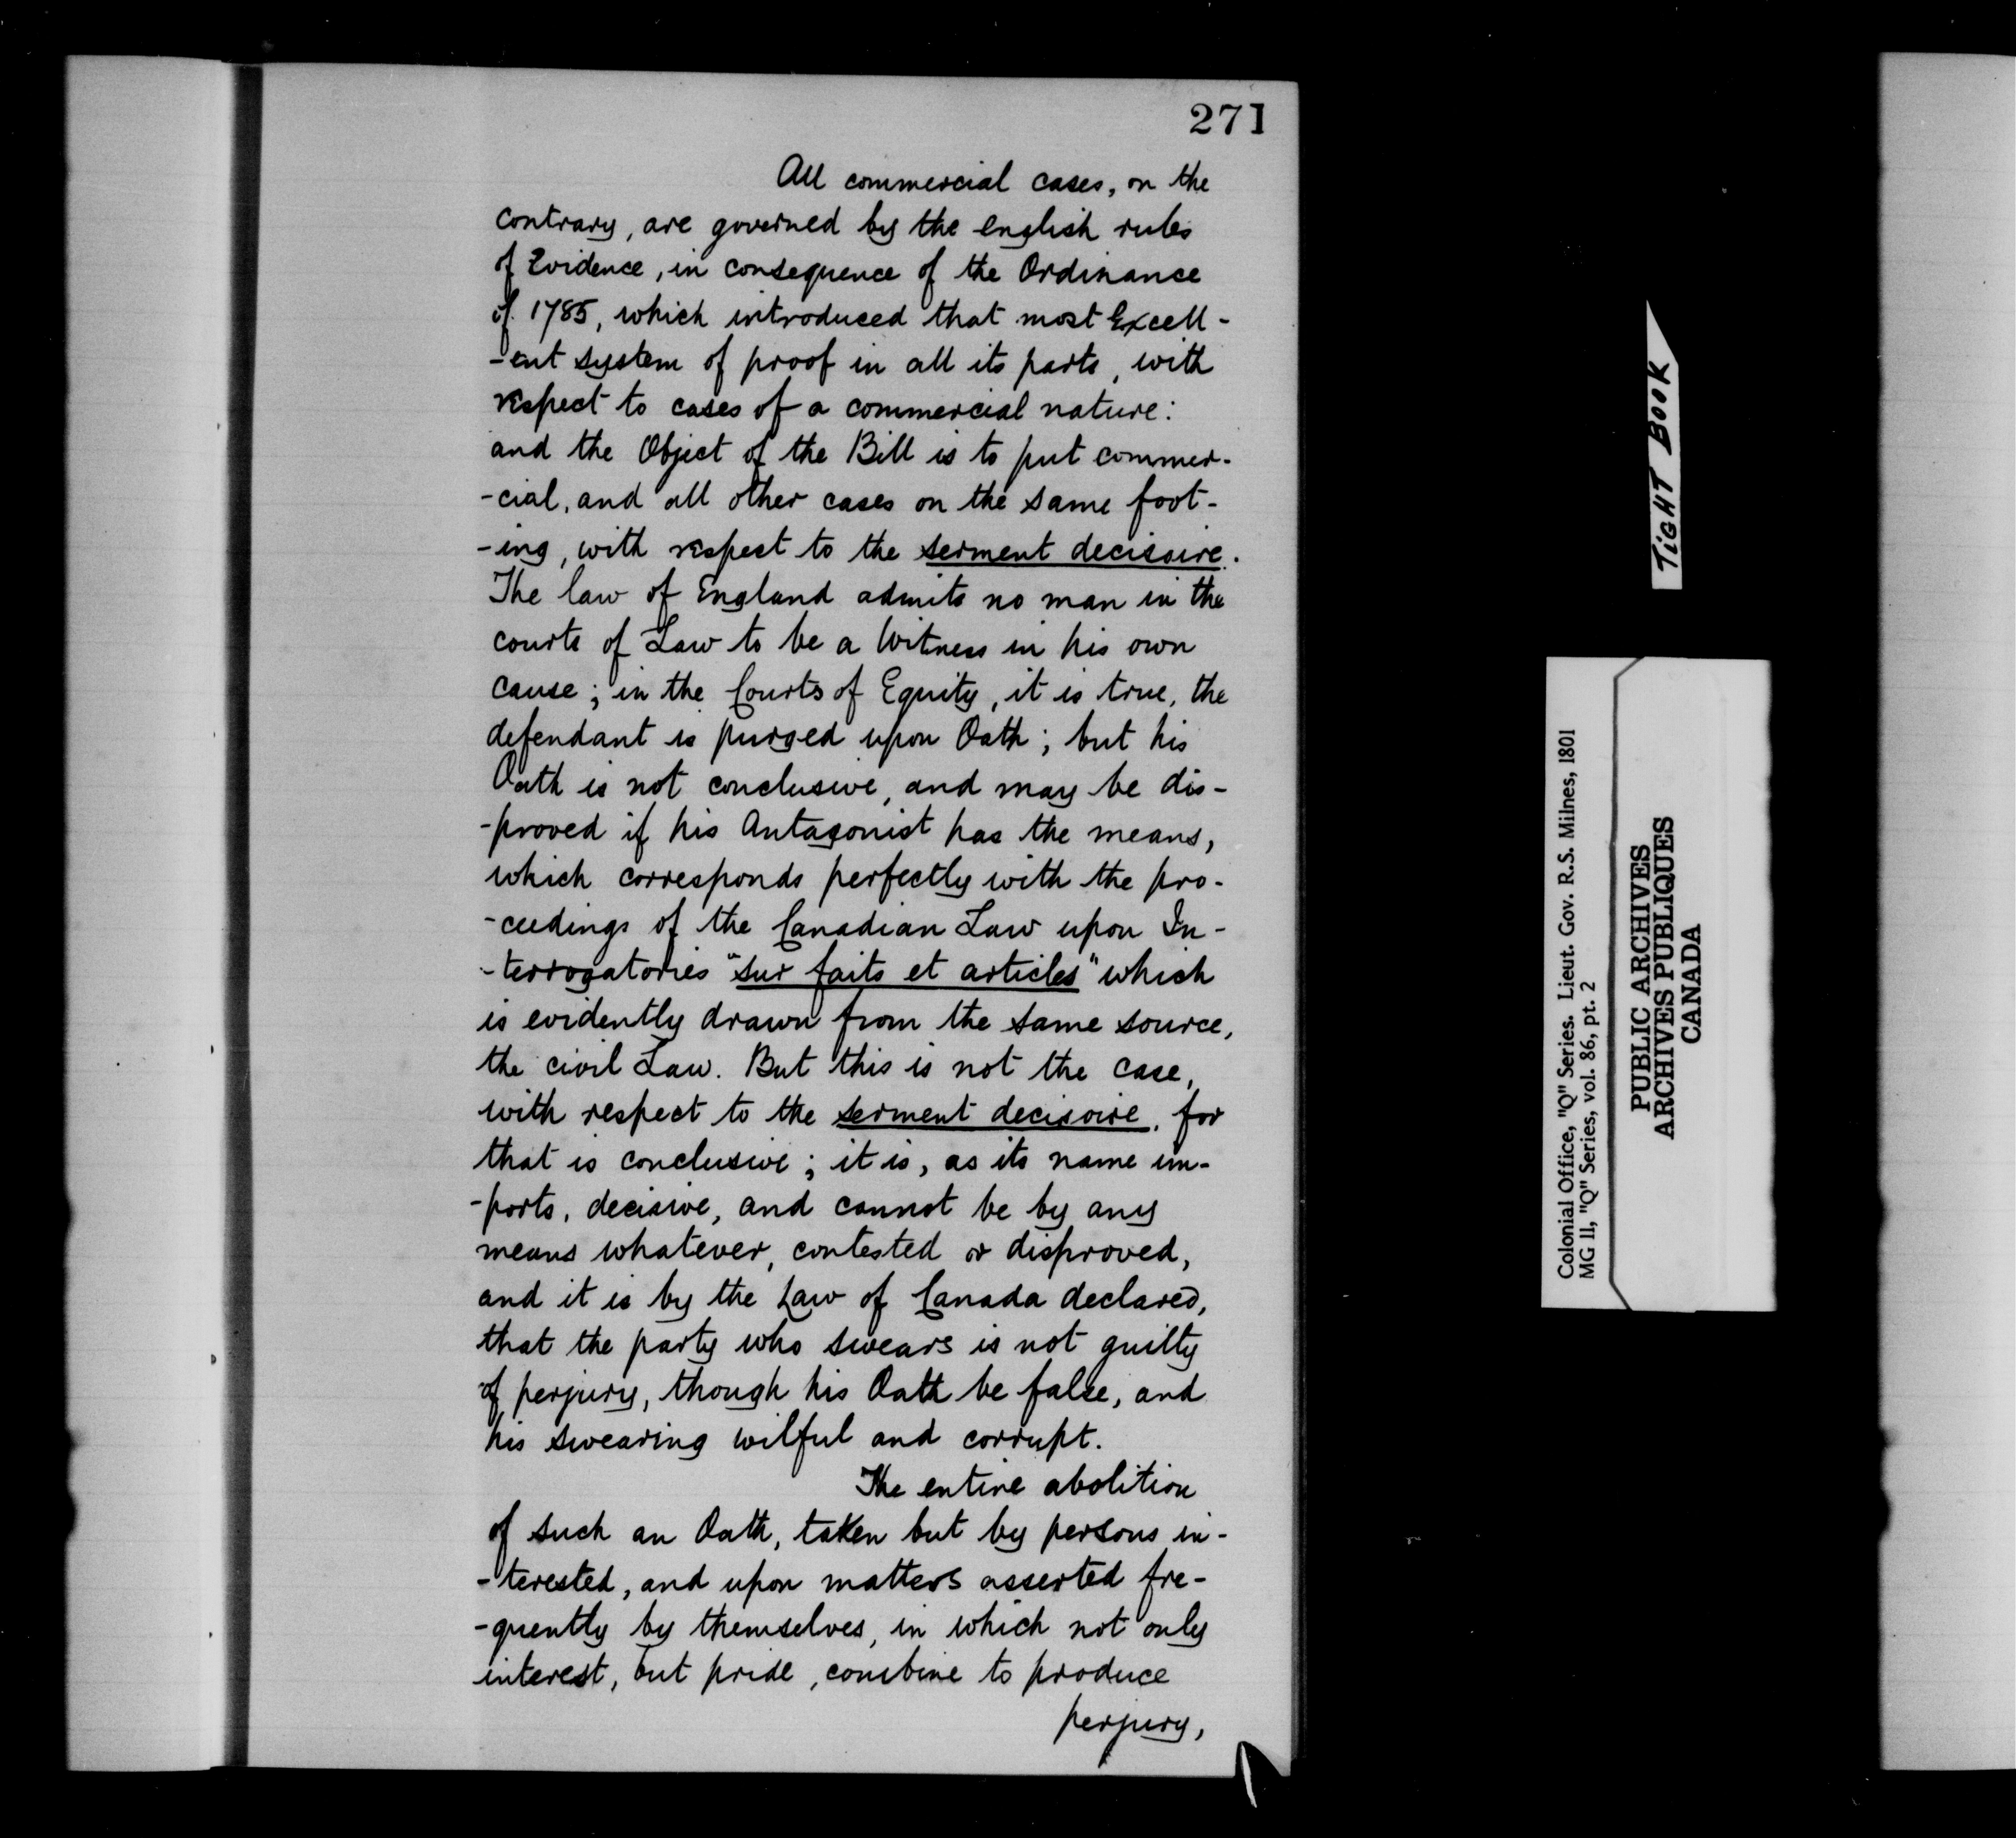 271
All commercial cases, on the
contrary, are governed by the english rules
of Evidence, in consequence of the Ordinance
of 1785, which introduced that most Excell-
-ent system of proof in all its parts, with
respect to cases of a commercial nature:
and the Object of the Bill is to put commer-
-cial, and all other cases on the same foot-
-ing, with respect to the serment decisoire.
The law of England admits no man in the
courts of Law to be a Witness in his own
cause; in the Courts of Equity, it is true, the
defendant is purged upon Oath; but his
Oath is not conclusive, and may be dis-
-proved if his Antagonist has the means,
which corresponds perfectly with the pro-
-ceedings of the Canadian Law upon In-
-terrogatories "sur faits et articles" which
is evidently drawn from the same source,
the civil Law. But this is not the case,
with respect to the serment decisoire, for
that is conclusive; it is, as its name im-
-ports, decisive, and cannot be by any
means whatever, contested or disproved,
and it is by the Law of Canada declared,
that the party who swears is not guilty
of perjury, though his Oath be false, and
his swearing wilful and corrupt.
The entire abolition
of such an Oath, taken but by persons in-
-terested, and upon matters asserted fre-
-quently by themselves, in which not only
interest, but pride, combine to produce
perjury,
TIGHT BOOK
Colonial Office, "Q" Series. Lieut. Gov. R.S. Milnes, 1801
MG 11, "Q" Series, vol. 86, pt. 2
PUBLIC ARCHIVES
ARCHIVES PUBLIQUES
CANADA